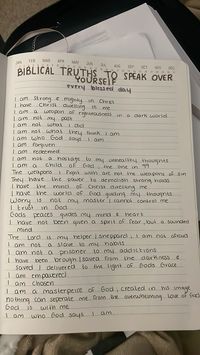 JAN FEB MAR APR MAY JUN JUL AUG SEP OCT NOV DEC
BIBLICAL TRUTHS TO SPEAK OVER
YOURSELF
every blessed day
I am strong & mighty in Christ
I have Christ dwelling in me
I am a weapon of righteousness in a dark world
I am not my past
I am not what I did
I am not what they think I am
I am who God says I am
I am forgiven
I am redeemed
I am not a hostage to my unhealthy thoughts
I am a child of God, the one in 99
The weapons I fight with are not the weapons of
They have the power to demolish strong holds
I have the mind of Christ directing me
I have the world of God guiding my thoughts
Worry is not my master, I cannot control me
I trust in God
Gods peace guards my mind & heart
I have not been given a spirit of fear, but a sounded
Mind
The Lord is my helper & , I am not afraid
I am not a slave to my habits
I am not a prisoner to my addictions
I have been brought / saved from the darkness &
Saved / delivered to the light of Gods Grace
I am empowered
I am chosen
I am a masterpeice of God, created in his image
Nothing can seperate me from the overwhelming love of
God is with me
I am who God says I am